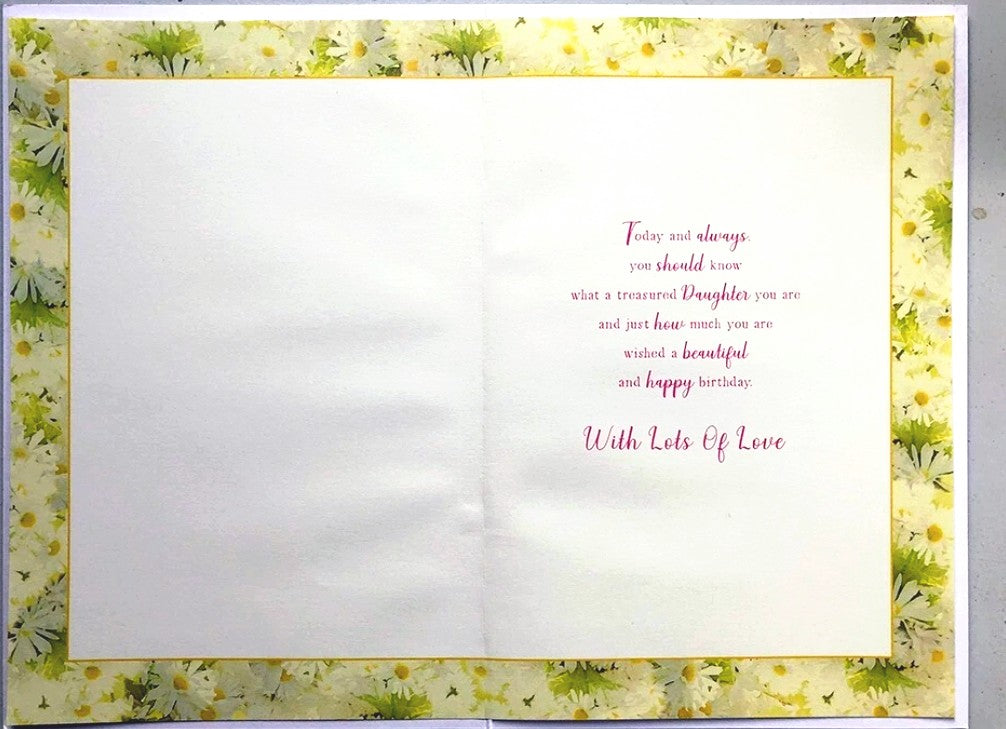 Today and always,
you should know
what a treasured Daughter you are
and just how much you are
wished a beautiful
and happy birthday.
With Lots Of Love